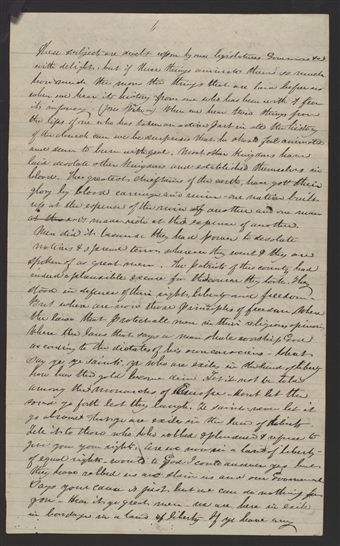 These subjects are dwelt upon by our legislatures Governors &c
with delight. but if these things animate them so much
how much the more the things that are laid before us
when we hear its history from one who has been with it from
its infancy (Jos. When we hear these things from
the lips of one who has taken an active part in all the history
of the church can we be surprised that he should feel animated
and seem to burn with zeal. Most other Kingdoms have
laid desolate other Kingdoms and established themselves in
blood. The greatest of the earth have got their
glory by blood carnage and ruin. one nation builds
up at the expense of the ruin of another and one man
is made rich at the expense of another.
Men did it because they had power to desolate
nations & spread terror wherever they went & they are
spoken of as great men. The Patriots of this country had
indeed a plausible excuse for the course they took. they
stood in defence of their rights, liberty and freedom.
But where are now those Principles of freedom. Where
the laws that protect all men in their religious opinions
Where the laws that says a man shall worship God
according to the dictates of his own conscience. What
say ye ye saints, ye who are exiles in the land of liberty
how has the gold become dim. Let it not be told
among the monarchs of Europe. dont let the
sound go forth lest they laugh. Ye saints never let it
go abroad that ye are exiles in the land of liberty
Tell it to those who have robbed & plundered & refuse to
give you your rights. Are we now in a land of liberty
of equal rights. would to God I could answer yes but
they have robbed us and slain us and our Government
says your cause is just but we can do nothing for
you. Hear it ye great men we are here in exile
in bondage in a land of liberty. If ye have any